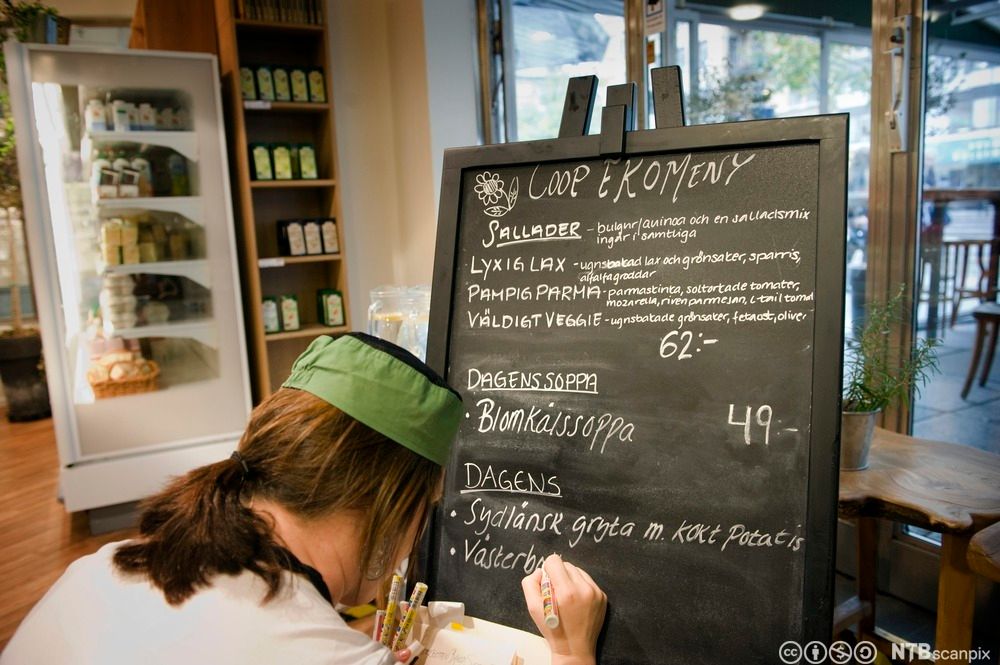 COOP EKOMENY
SALLADER - bulgur/quinoa och en salladsmix
ingår i samtliga
LYXIG LAX - ugnsbakad lax och grönsaker, sparris,
alfalfagroddar
PAMPIG PARMA - parmaskinka, soltorkade tomater,
mozarella, riven parmesan, coctail tomat
VÄLDIGT VEGGIE - ugnsbakade grönsaker, fetaost, oliver
62:-
DAGENS SOPPA
• Blomkålssoppa 49:-
DAGENS
• Sydländsk gryta m. kokt Potatis
• Västerbo
NTBscanpix